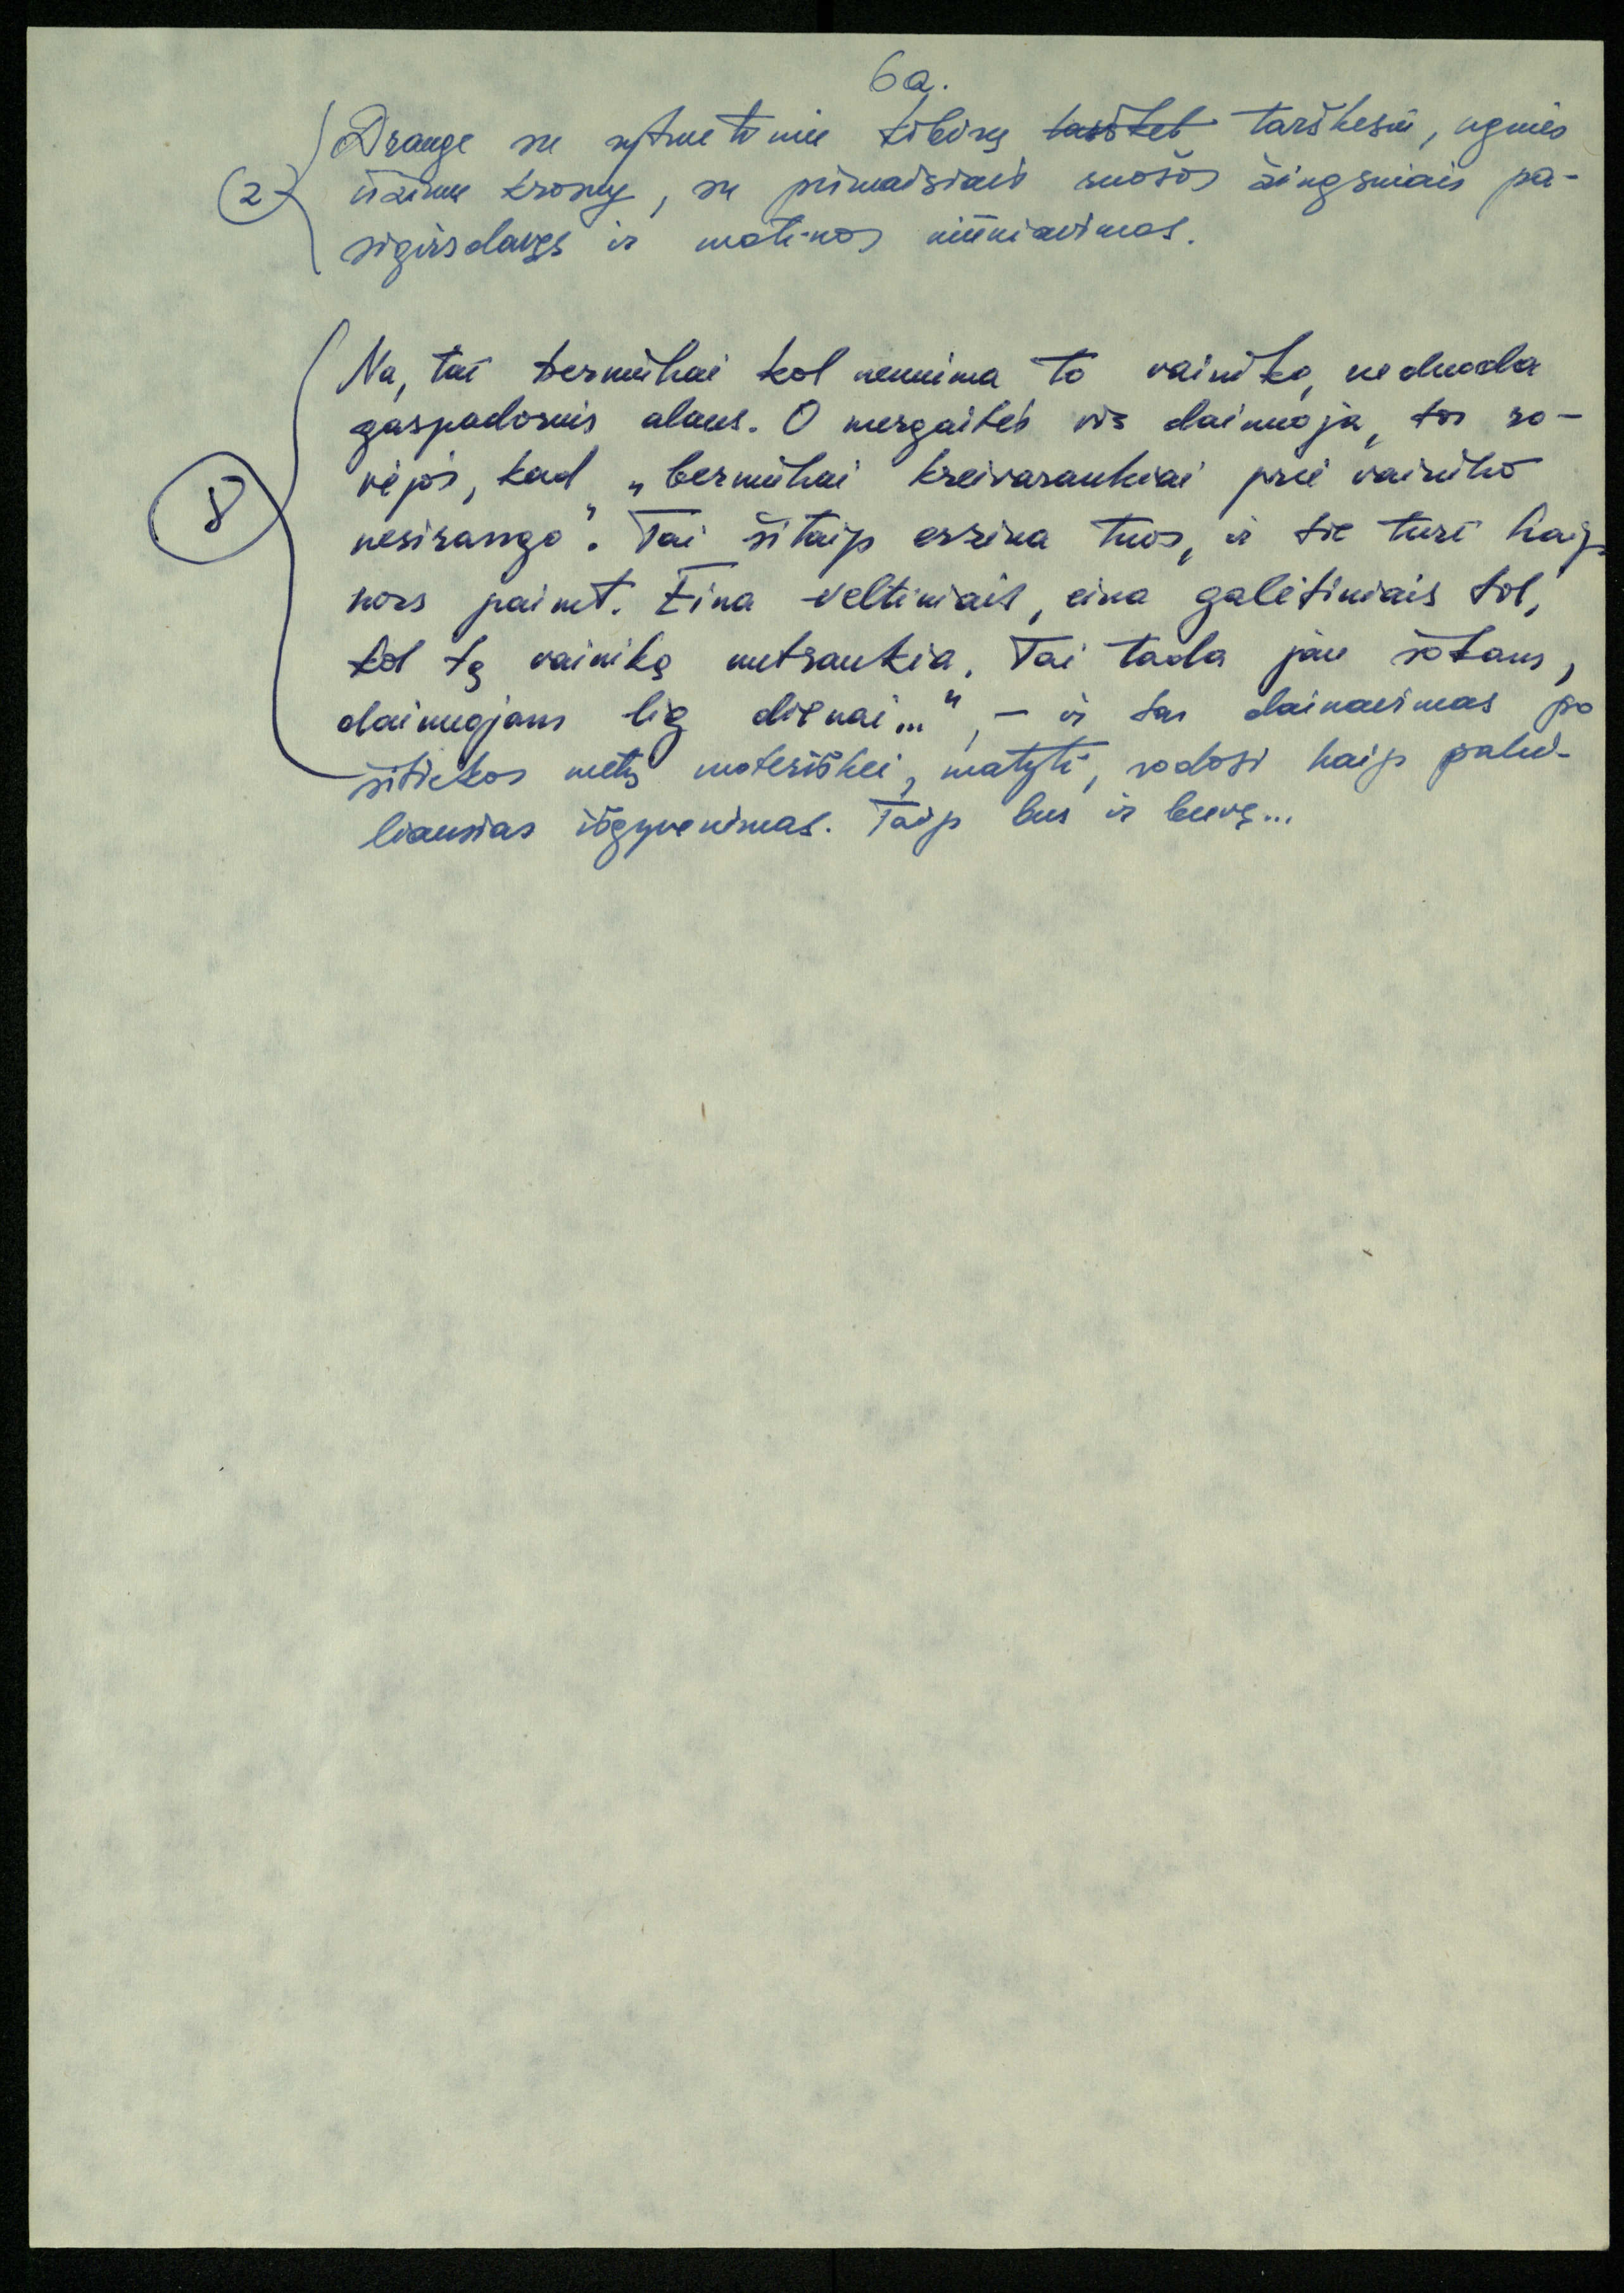 6a.
Drauge su rytmetiniu kibirų taršket taršKesiu, ugnies
(2) ūžimu krosny, su pirmaisiais ruošos žingsniais pa-
sigirsdavęs ir motinos niūniavimas.
Na, tai berniukai kol nenuima to vainiko, neduoda
gaspadorius alaus. O mergaitės vis dainuoja, tos ro-
vėjos, kad „berniukai kreivarankiai prie vainiko
8 nesirango". Tai šitaip erzina tuos, ir tie turi kaip
nors paimt. Eina veltiniais, eina galėtiniais tol,
kol tą vainiką nutraukia. Tai tada jau šokam,
dainuojam lig dienai...", – ir tas dainavimas po
šitiekos metų moteriškei, matyti, rodosi kaip paki-
liausias išgyvenimas. Taip bus ir buvę...